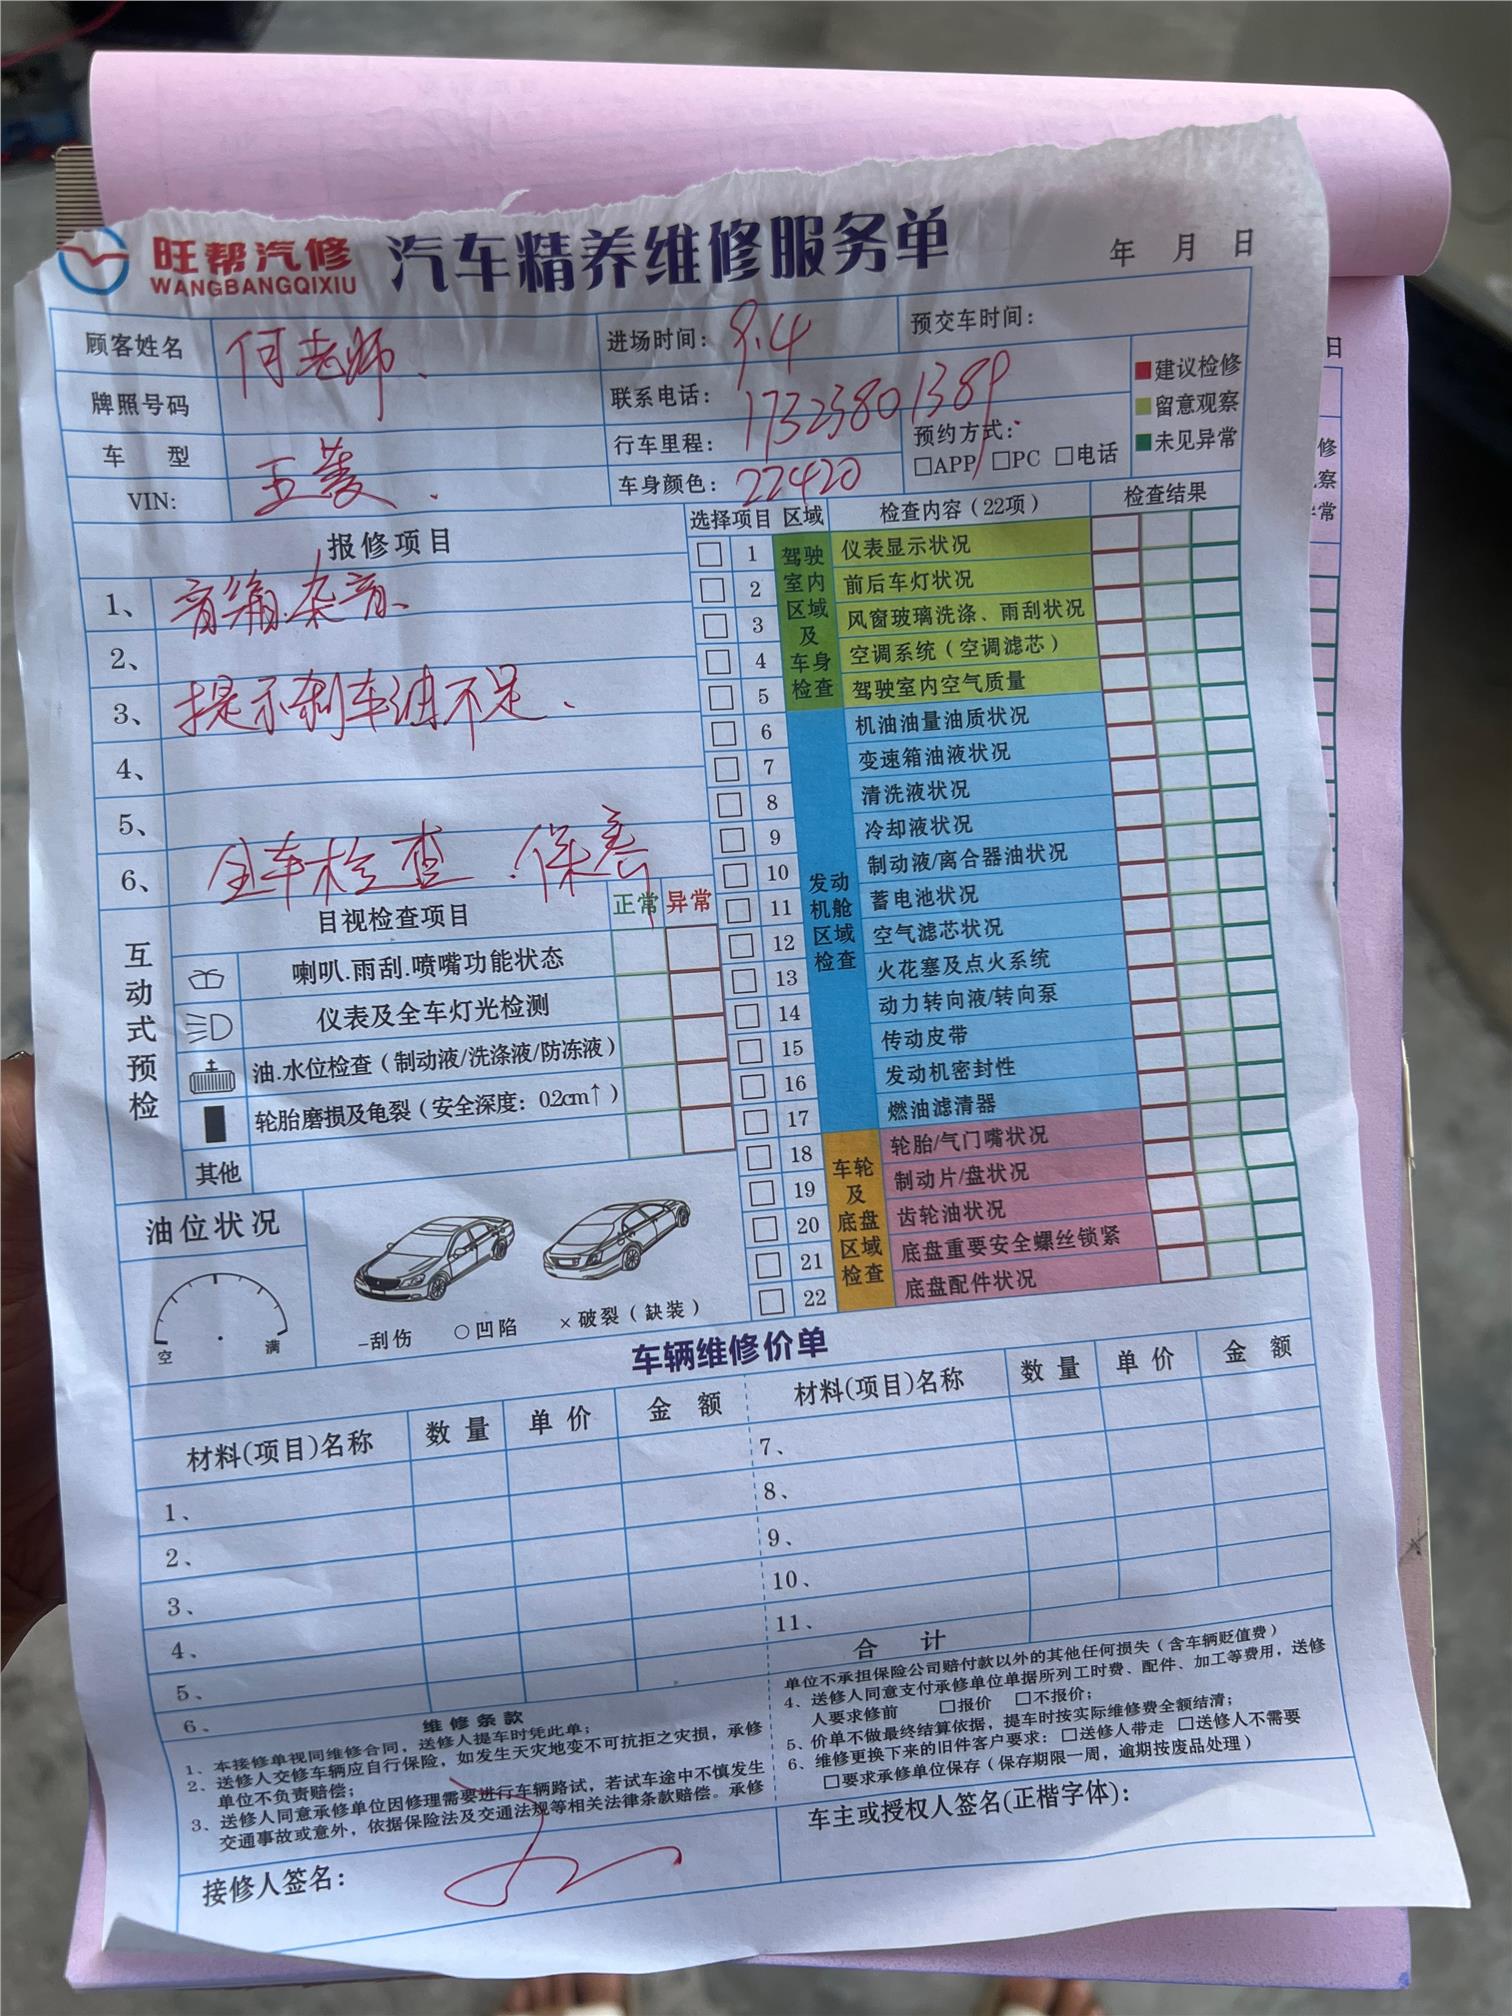 旺帮汽修
WANGBANGQIXIU
汽车精养维修服务单
年 月 日
顾客姓名 何老师、
进场时间: 9.4
预交车时间:
牌照号码
联系电话: 17323801389
车 型 五菱.
行车里程: 22420
预约方式:
□APP □PC □电话
VIN:
车身颜色:
建议检修
留意观察
未见异常
报修项目
1、音箱杂音、
2、
3、提示刹车油不足、
4、
5、
6、全车检查.保养
选择项目 区域 检查内容(22项) 检查结果
驾驶室内区域及车身检查
1 仪表显示状况
2 前后车灯状况
3 风窗玻璃洗涤、雨刮状况
4 空调系统(空调滤芯)
5 驾驶室内空气质量
发动机舱区域检查
6 机油油量油质状况
7 变速箱油液状况
8 清洗液状况
9 冷却液状况
10 制动液/离合器油状况
11 蓄电池状况
12 空气滤芯状况
13 火花塞及点火系统
14 动力转向液/转向泵
15 传动皮带
16 发动机密封性
17 燃油滤清器
车轮及底盘区域检查
18 轮胎/气门嘴状况
19 制动片/盘状况
20 齿轮油状况
21 底盘重要安全螺丝锁紧
22 底盘配件状况
互动式预检
目视检查项目 正常 异常
喇叭.雨刮.喷嘴功能状态
仪表及全车灯光检测
油.水位检查(制动液/洗涤液/防冻液)
轮胎磨损及龟裂(安全深度: 0.2cm↑)
其他
油位状况
空 满
-刮伤 ○凹陷 ×破裂(缺装)
车辆维修价单
材料(项目)名称 数量 单价 金额
材料(项目)名称 数量 单价 金额
1、
2、
3、
4、
5、
6、
7、
8、
9、
10、
11、
合 计
维修条款
1、本接修单视同维修合同，送修人提车时凭此单;
2、送修人交修车辆应自行保险，如发生天灾地变不可抗拒之灾损，承修
单位不负责赔偿;
3、送修人同意承修单位因修理需要进行车辆路试，若试车途中不慎发生
交通事故或意外，依据保险法及交通法规等相关法律条款赔偿。承修
单位不承担保险公司赔付款以外的其他任何损失(含车辆贬值费)
4、送修人同意支付承修单位单据所列工时费、配件、加工等费用，送修
人要求修前 □报价 □不报价;
5、价单不做最终结算依据，提车时按实际维修费全额结清;
6、维修更换下来的旧件客户要求: □送修人带走 □送修人不需要
□要求承修单位保存(保存期限一周，逾期按废品处理)
接修人签名:
车主或授权人签名(正楷字体):
日
修
察
常